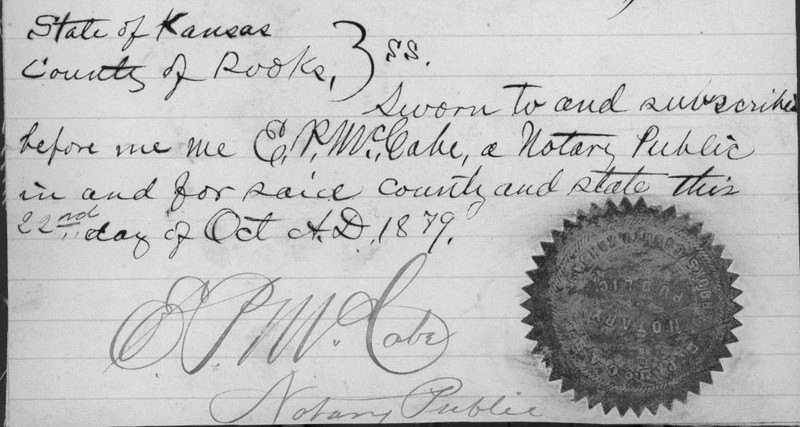 State of Kansas
County of Rooks, } SS.
Sworn to and subscribed
before me me E. P. McCabe, a Notary Public
in and for saice county and state this
22nd day of Oct A.D. 1879.
E. P. McCabe
Notary Public
NOTARY
PUBLIC